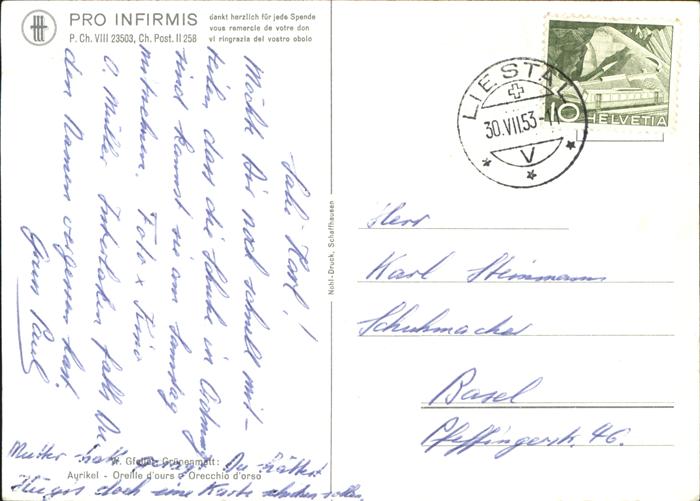 PRO INFIRMIS
P. Ch. VIII 23503, Ch. Post. II 258
dankt herzlich für jede Spende
vous remercie de votre don
vi ringrazia del vostro obolo
Sali Karl!
Möchte Dir noch schnell mit-
teilen dass die Schuhe in Ordnung
sind kannst sie am Samstag
mitnehmen. Foto x Kino
O. Müller Interlaken falls Du
den Namen vergessen hast.
Gruss Paul.
Mutter hat gesagt Du hättest
doch eine Karte
W. Gfeller, Grünenmatt:
Aurikel - Oreille d'ours - Orecchio d'orso
Nohl-Druck, Schaffhausen
LIESTAL
30.VII.53-11
V
10
HELVETIA
Herr
Karl Steinmann
Schuhmacher
Basel
Pfeffingerstr. 46.